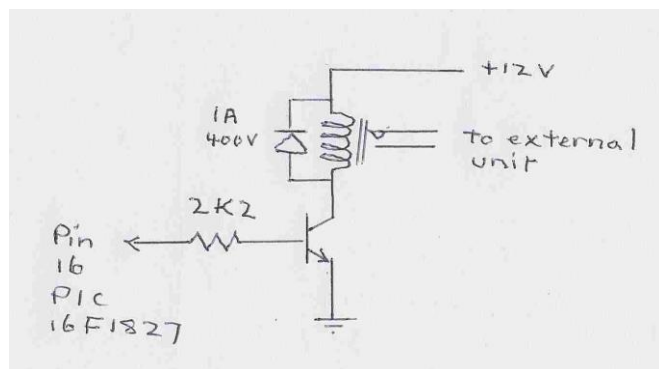 +12V
1A
400V
to external
unit
2K2
Pin
16
PIC
16F1827